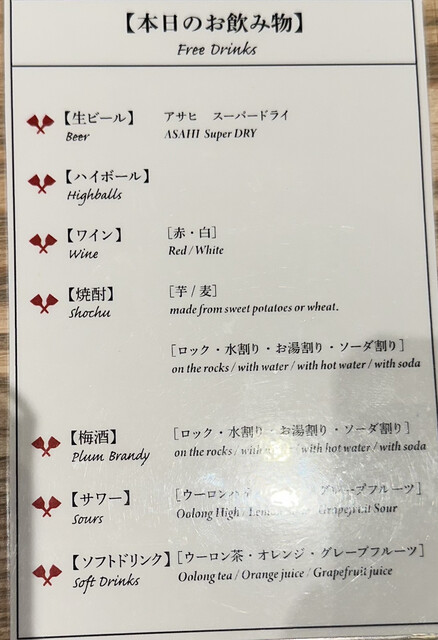 【本日のお飲み物】
Free Drinks
【生ビール】 アサヒ スーパードライ
Beer ASAHI Super DRY
【ハイボール】
Highballs
【ワイン】 [赤・白]
Wine Red / White
【焼酎】 [芋 / 麦]
Shochu made from sweet potatoes or wheat.
[ロック・水割り・お湯割り・ソーダ割り]
on the rocks / with water / with hot water / with soda
【梅酒】 [ロック・水割り・お湯割り・ソーダ割り]
Plum Brandy on the rocks / with water / with hot water / with soda
【サワー】 [ウーロンハイ グレープフルーツ]
Sours Oolong High / Grapefruit Sour
【ソフトドリンク】 [ウーロン茶・オレンジ・グレープフルーツ]
Soft Drinks Oolong tea / Orange juice / Grapefruit juice